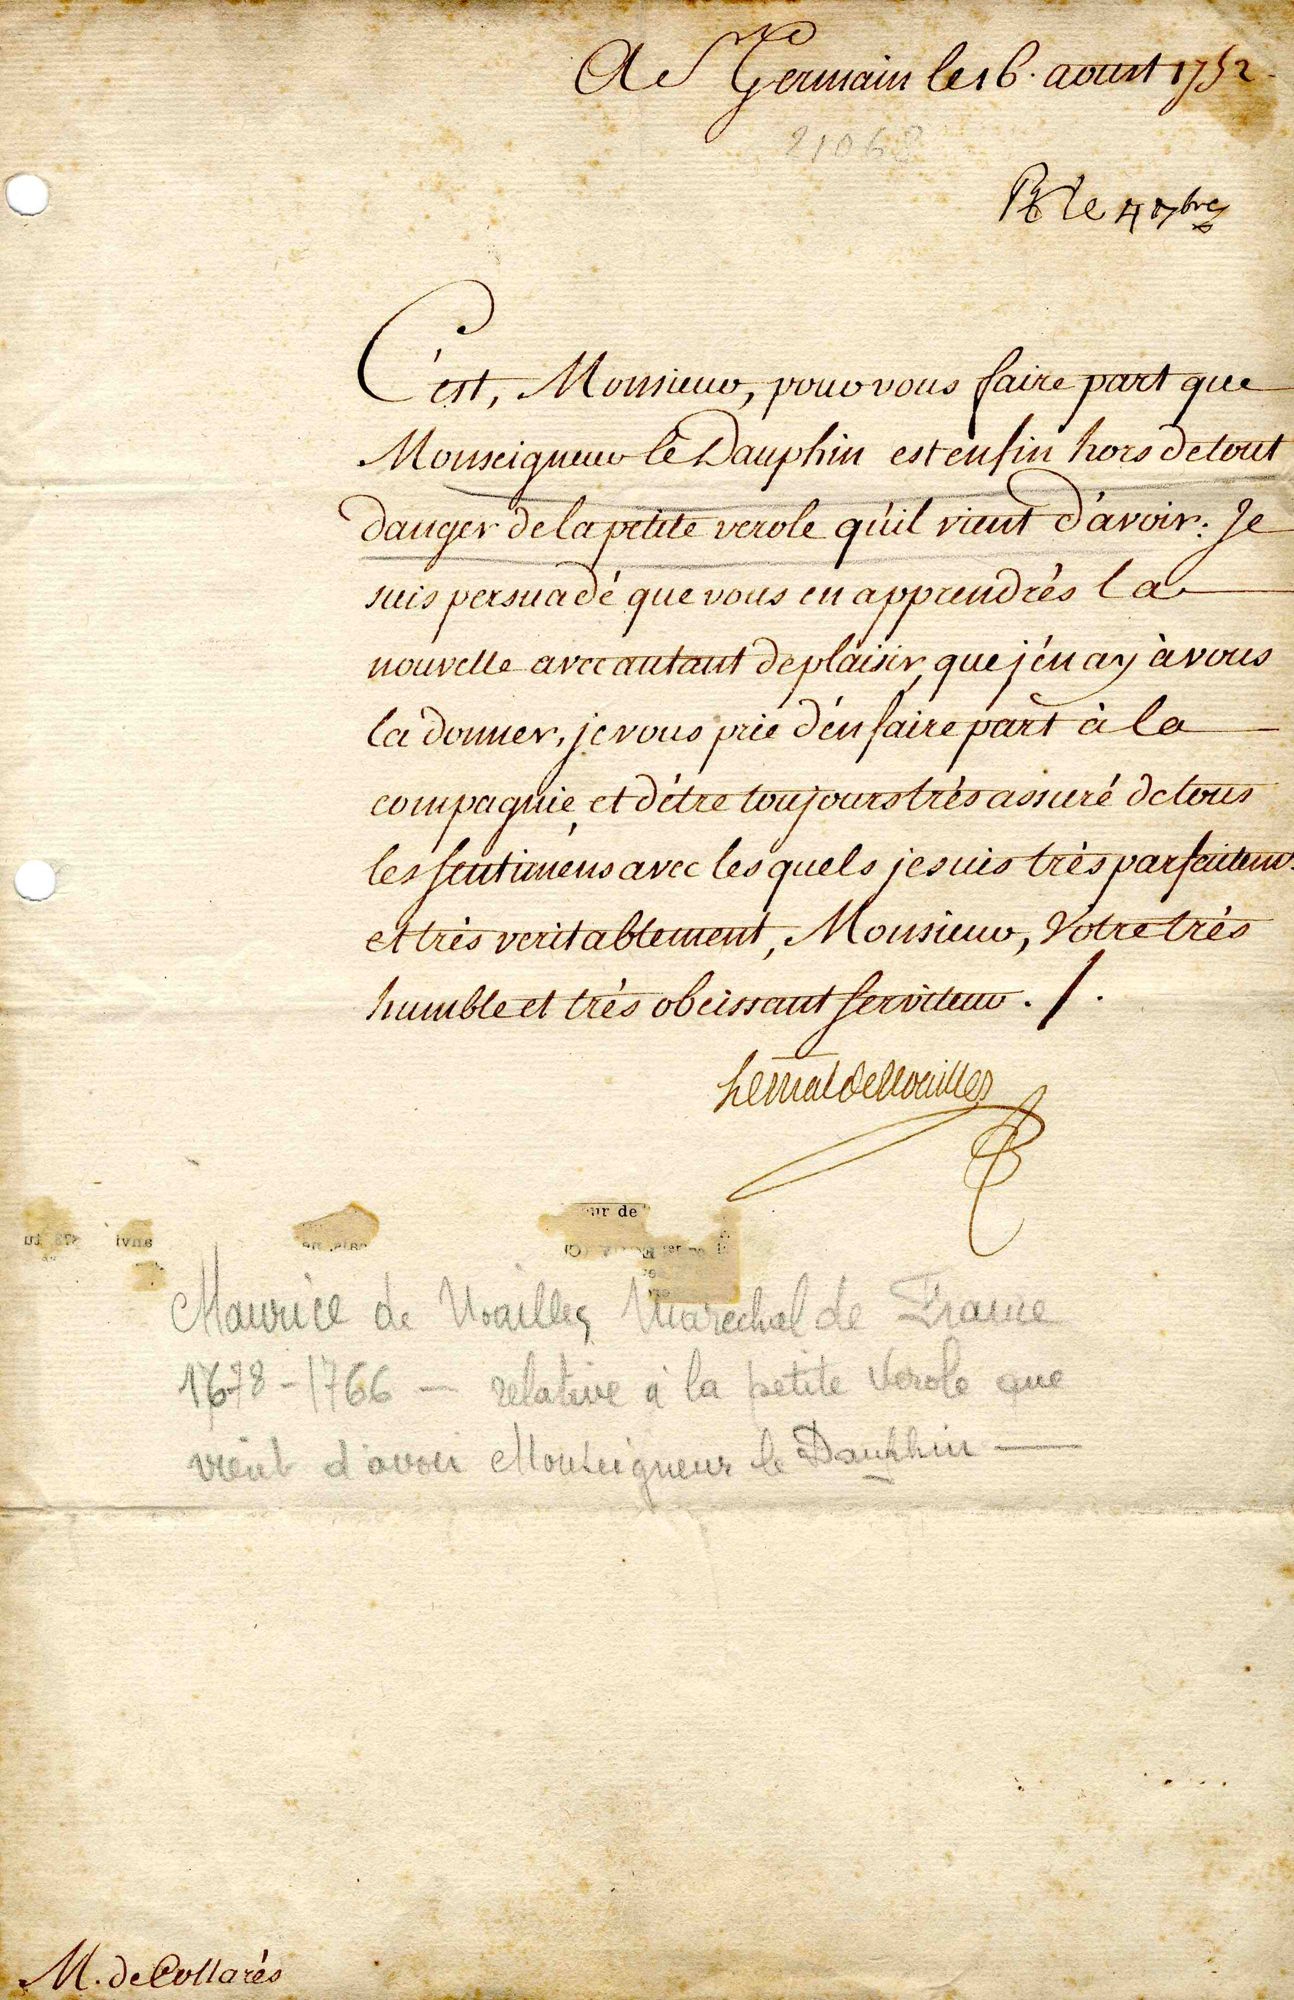 A St Germain le 16. aoust 1752.
21068
Rt le 4 7bre
C'est, Monsieur, pour vous faire part que
Monseigneur le Dauphin est enfin hors de tout
danger de la petite verole qu'il vient d'avoir. Je
suis persuadé que vous en apprendrés la
nouvelle avec autant de plaisir, que j'en ay à vous
la donner, je vous prie d'en faire part à la
compagnie, et d'être toujours très assuré de tous
les sentimens avec lesquels je suis très parfaitem.
et très veritablement, Monsieur, Votre très
humble et très obeissant serviteur ./.
Le Mal de Noailles
ur de
Maurice de Noailles Marechal de France
1678 - 1766 — relative à la petite Verole que
vient d'avoir Monseigneur le Dauphin —
M. de Collarés